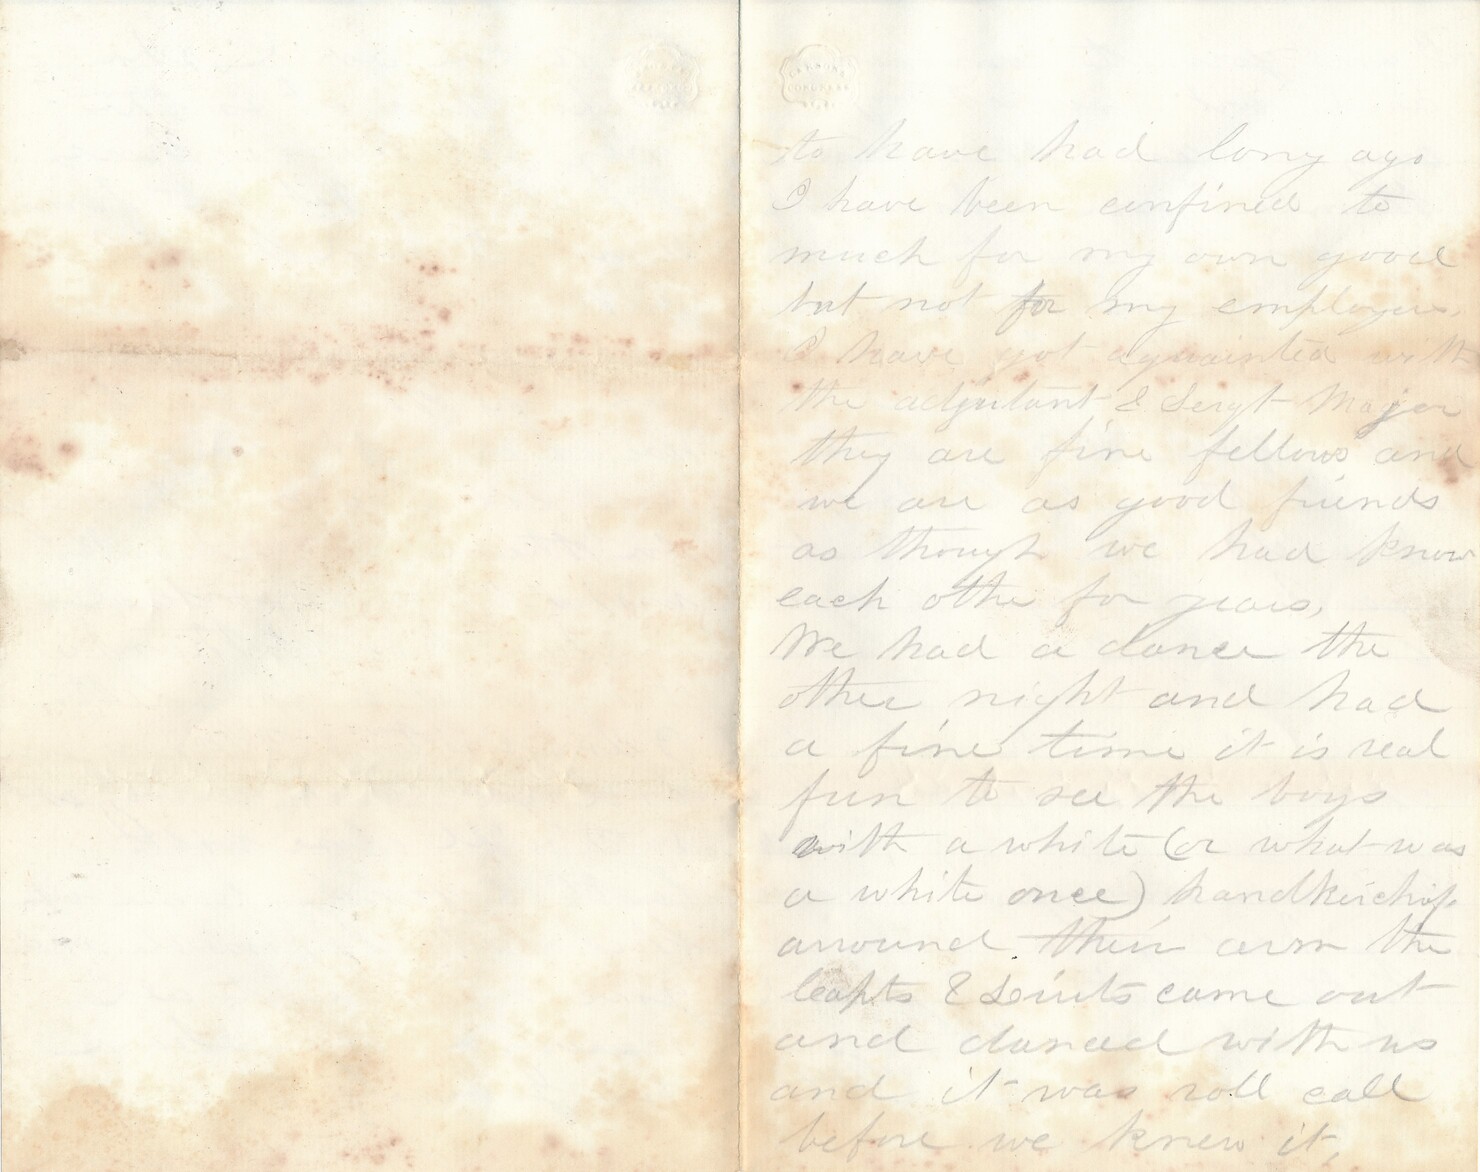 PARSONS
CONGRESS
to have had long ago
I have been confined to
much for my own good
but not for my employers,
I have got aquainted with
the adjutant & Sergt Major
they are fine fellows and
we are as good friends
as though we had know
each othe for years,
We had a dance the
other night and had
a fine time it is real
fun to see the boys
with a white (or what was
a white once) handkerchif
arround their arm the
Capts & Leiuts came out
and danced with us
and it was roll call
before we knew it,